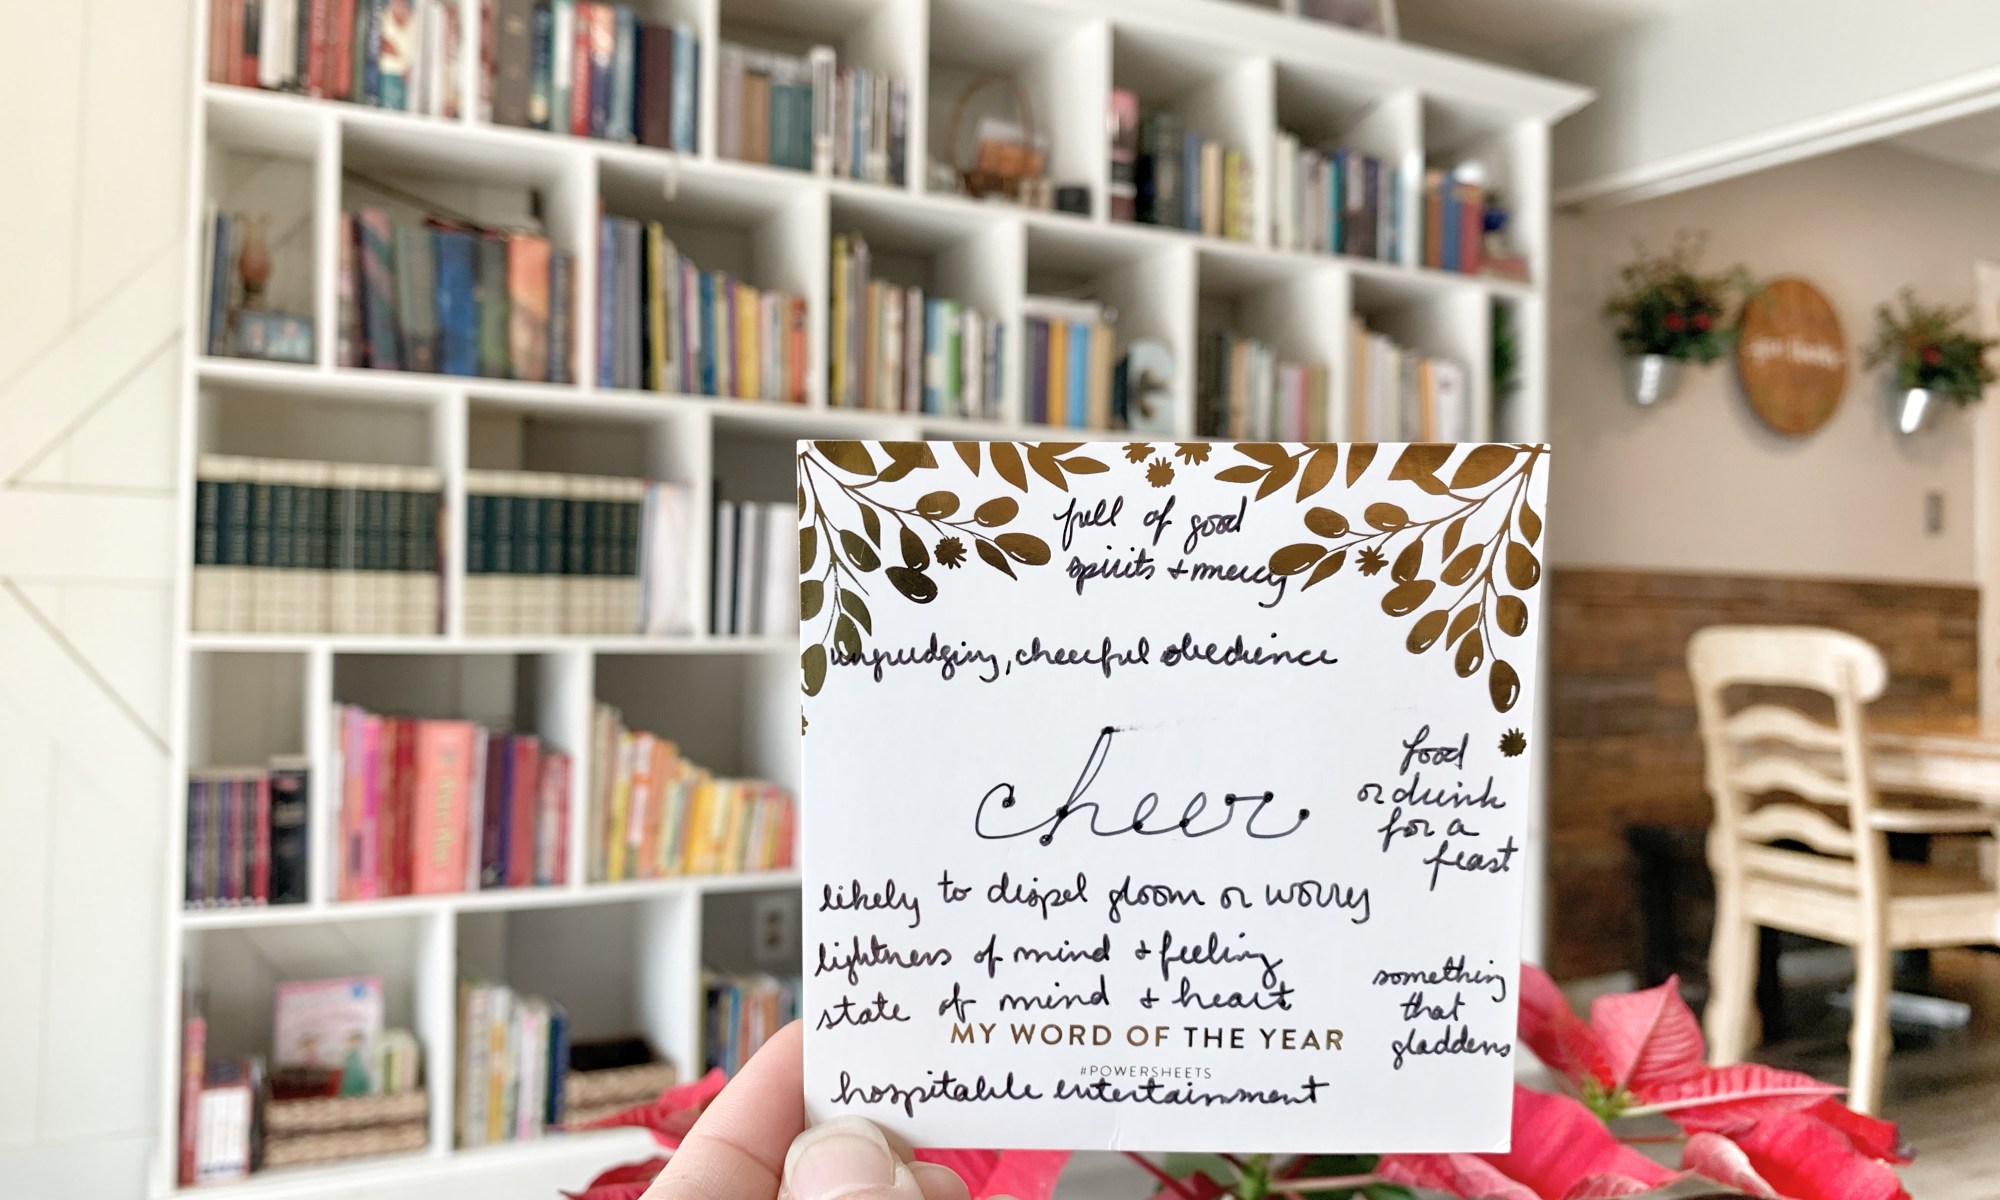 full of good
spirits + mercy
ungrudging, cheerful obedience
cheer
food
or drink
for a
feast
likely to dispel gloom or worry
lightness of mind + feeling
state of mind + heart
something
that
gladdens
MY WORD OF THE YEAR
#POWERSHEETS
hospitable entertainment